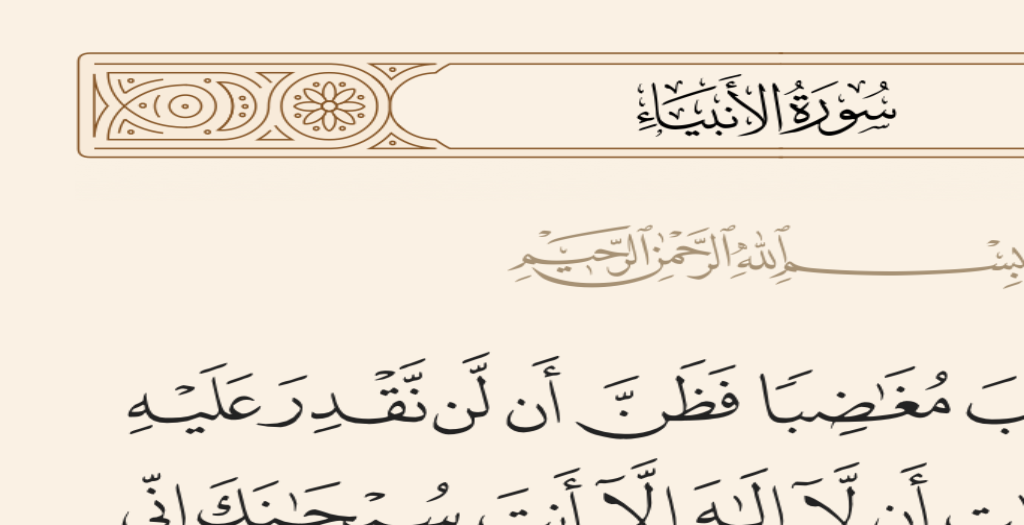 سُورَةُ الأَنبِيَاءِ
بِسْمِ ٱللَّهِ ٱلرَّحْمَٰنِ ٱلرَّحِيمِ
مُغَٰضِبًا فَظَنَّ أَن لَّن نَّقْدِرَ عَلَيْهِ
أَن لَّآ إِلَٰهَ إِلَّآ أَنتَ سُبْحَٰنَكَ إِنِّى